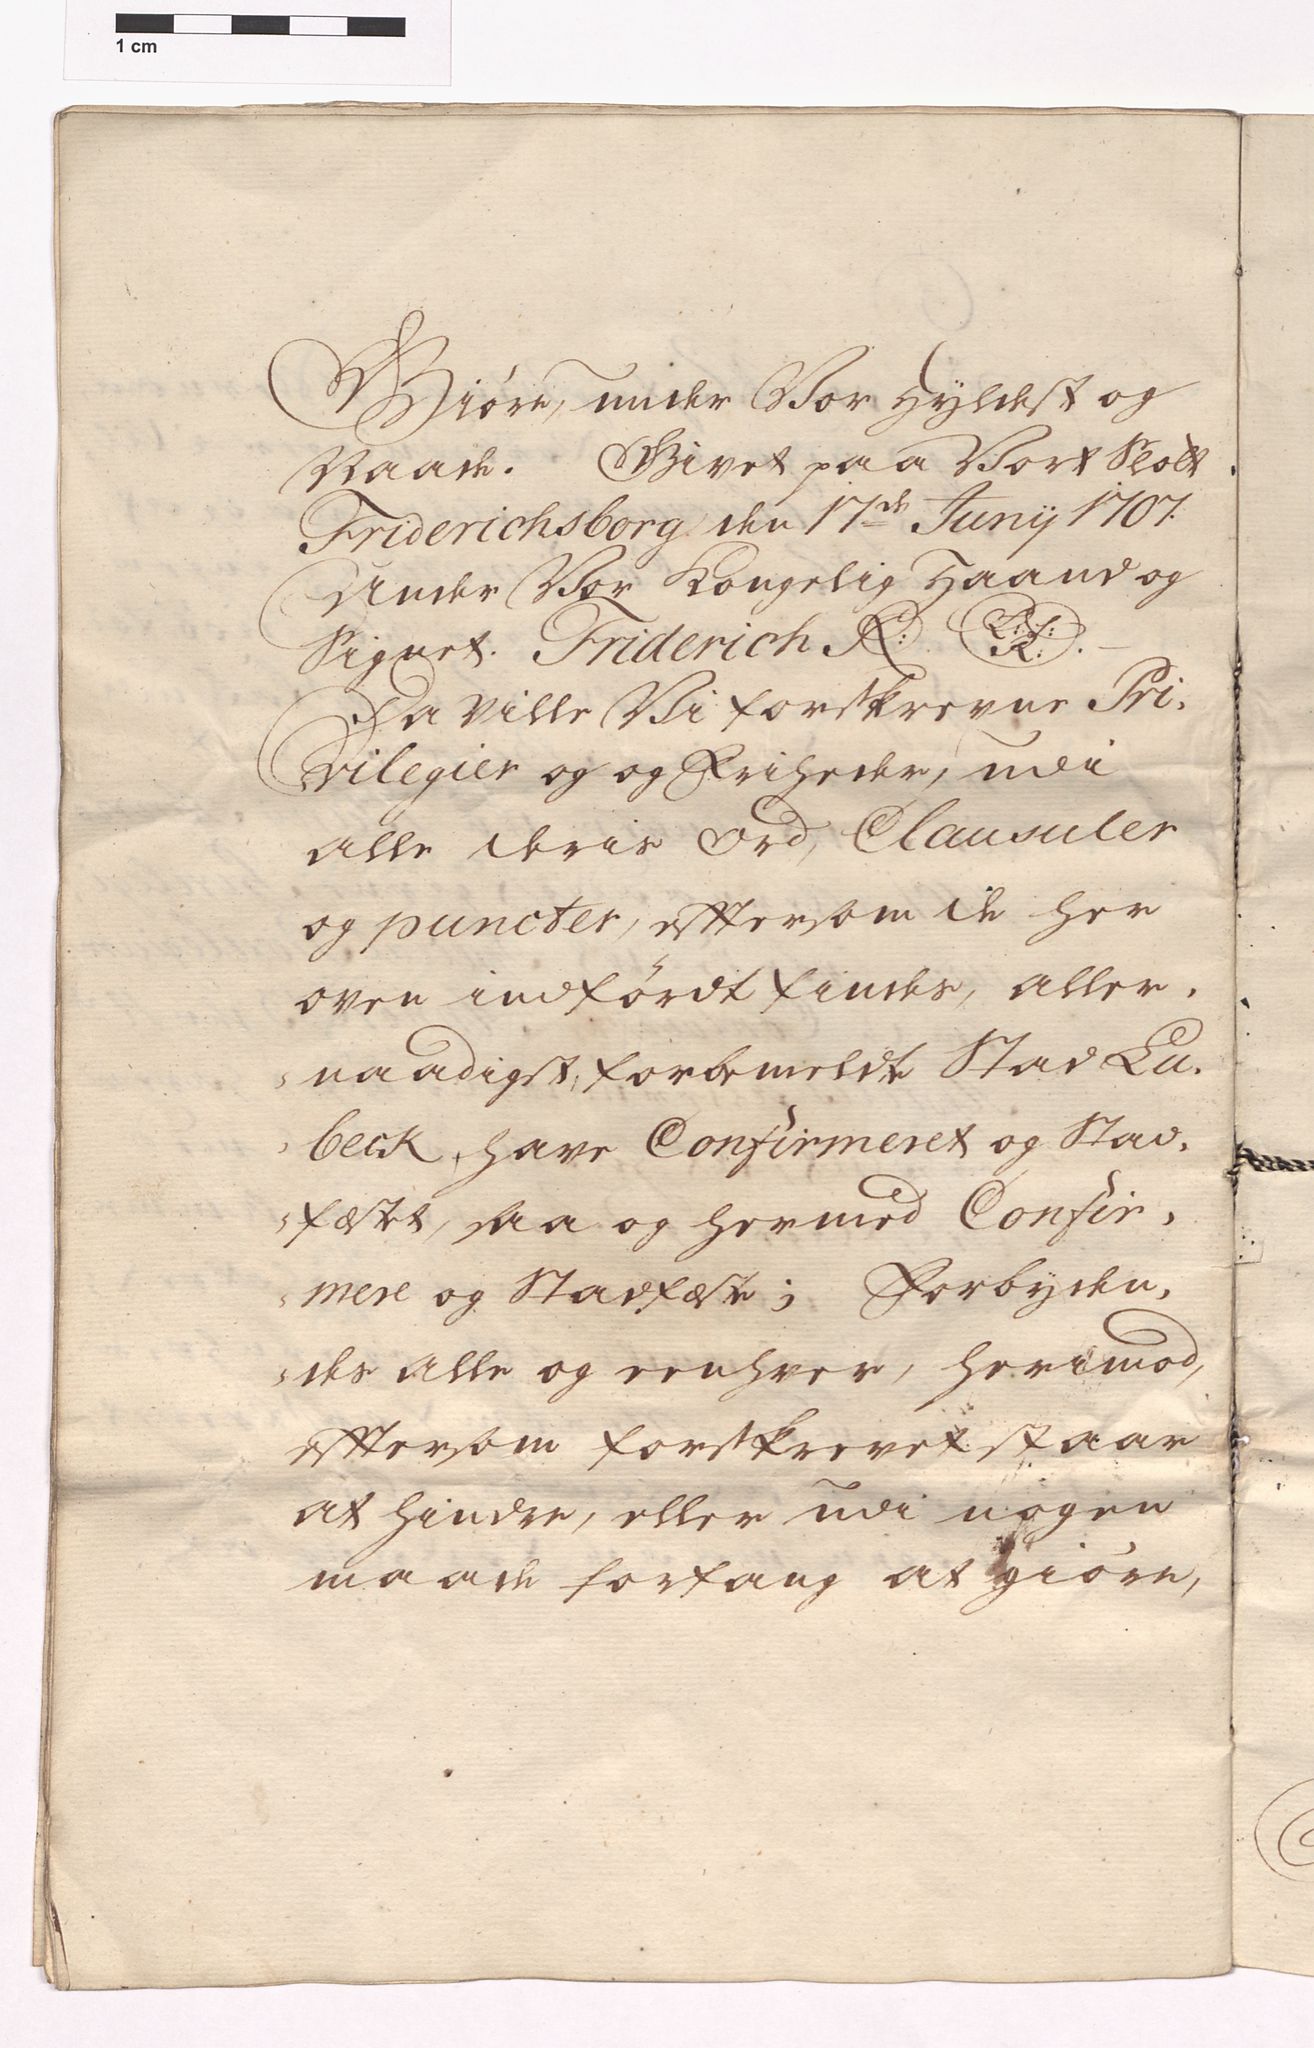 1 cm
Giöre, under Vor Hyldest og
Naade. Givet paa Vort Slott
Friderichsborg den 17de Junij 1707.
Under Vor Kongelig Haand og
Signet. Friderich R.
Da ville Vi forskrevne Pri-
vilegier og og Friheder, udi
alle deris Ord, Clausuler
og puncter, eftersom de her
oven indfördt findes, aller-
naadigst, forbemeldte Stad Lu-
beck, have Confirmeret og Stad-
fæstet, saa og hermed Confir-
mere og Stadfæste; Forbyden-
des alle og eenhver, herimod,
eftersom forskrevet staar
at hindre, eller udi nogen
maade forfang at giöre,